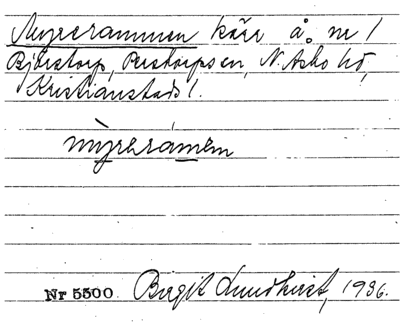 Myreramen kärr å nr 1
Björstorp, Perstorps sn, N. Åsbo hd,
Kristianstads l.
myrerámen
Nr 5500 Birgit Lundkvist, 1936.